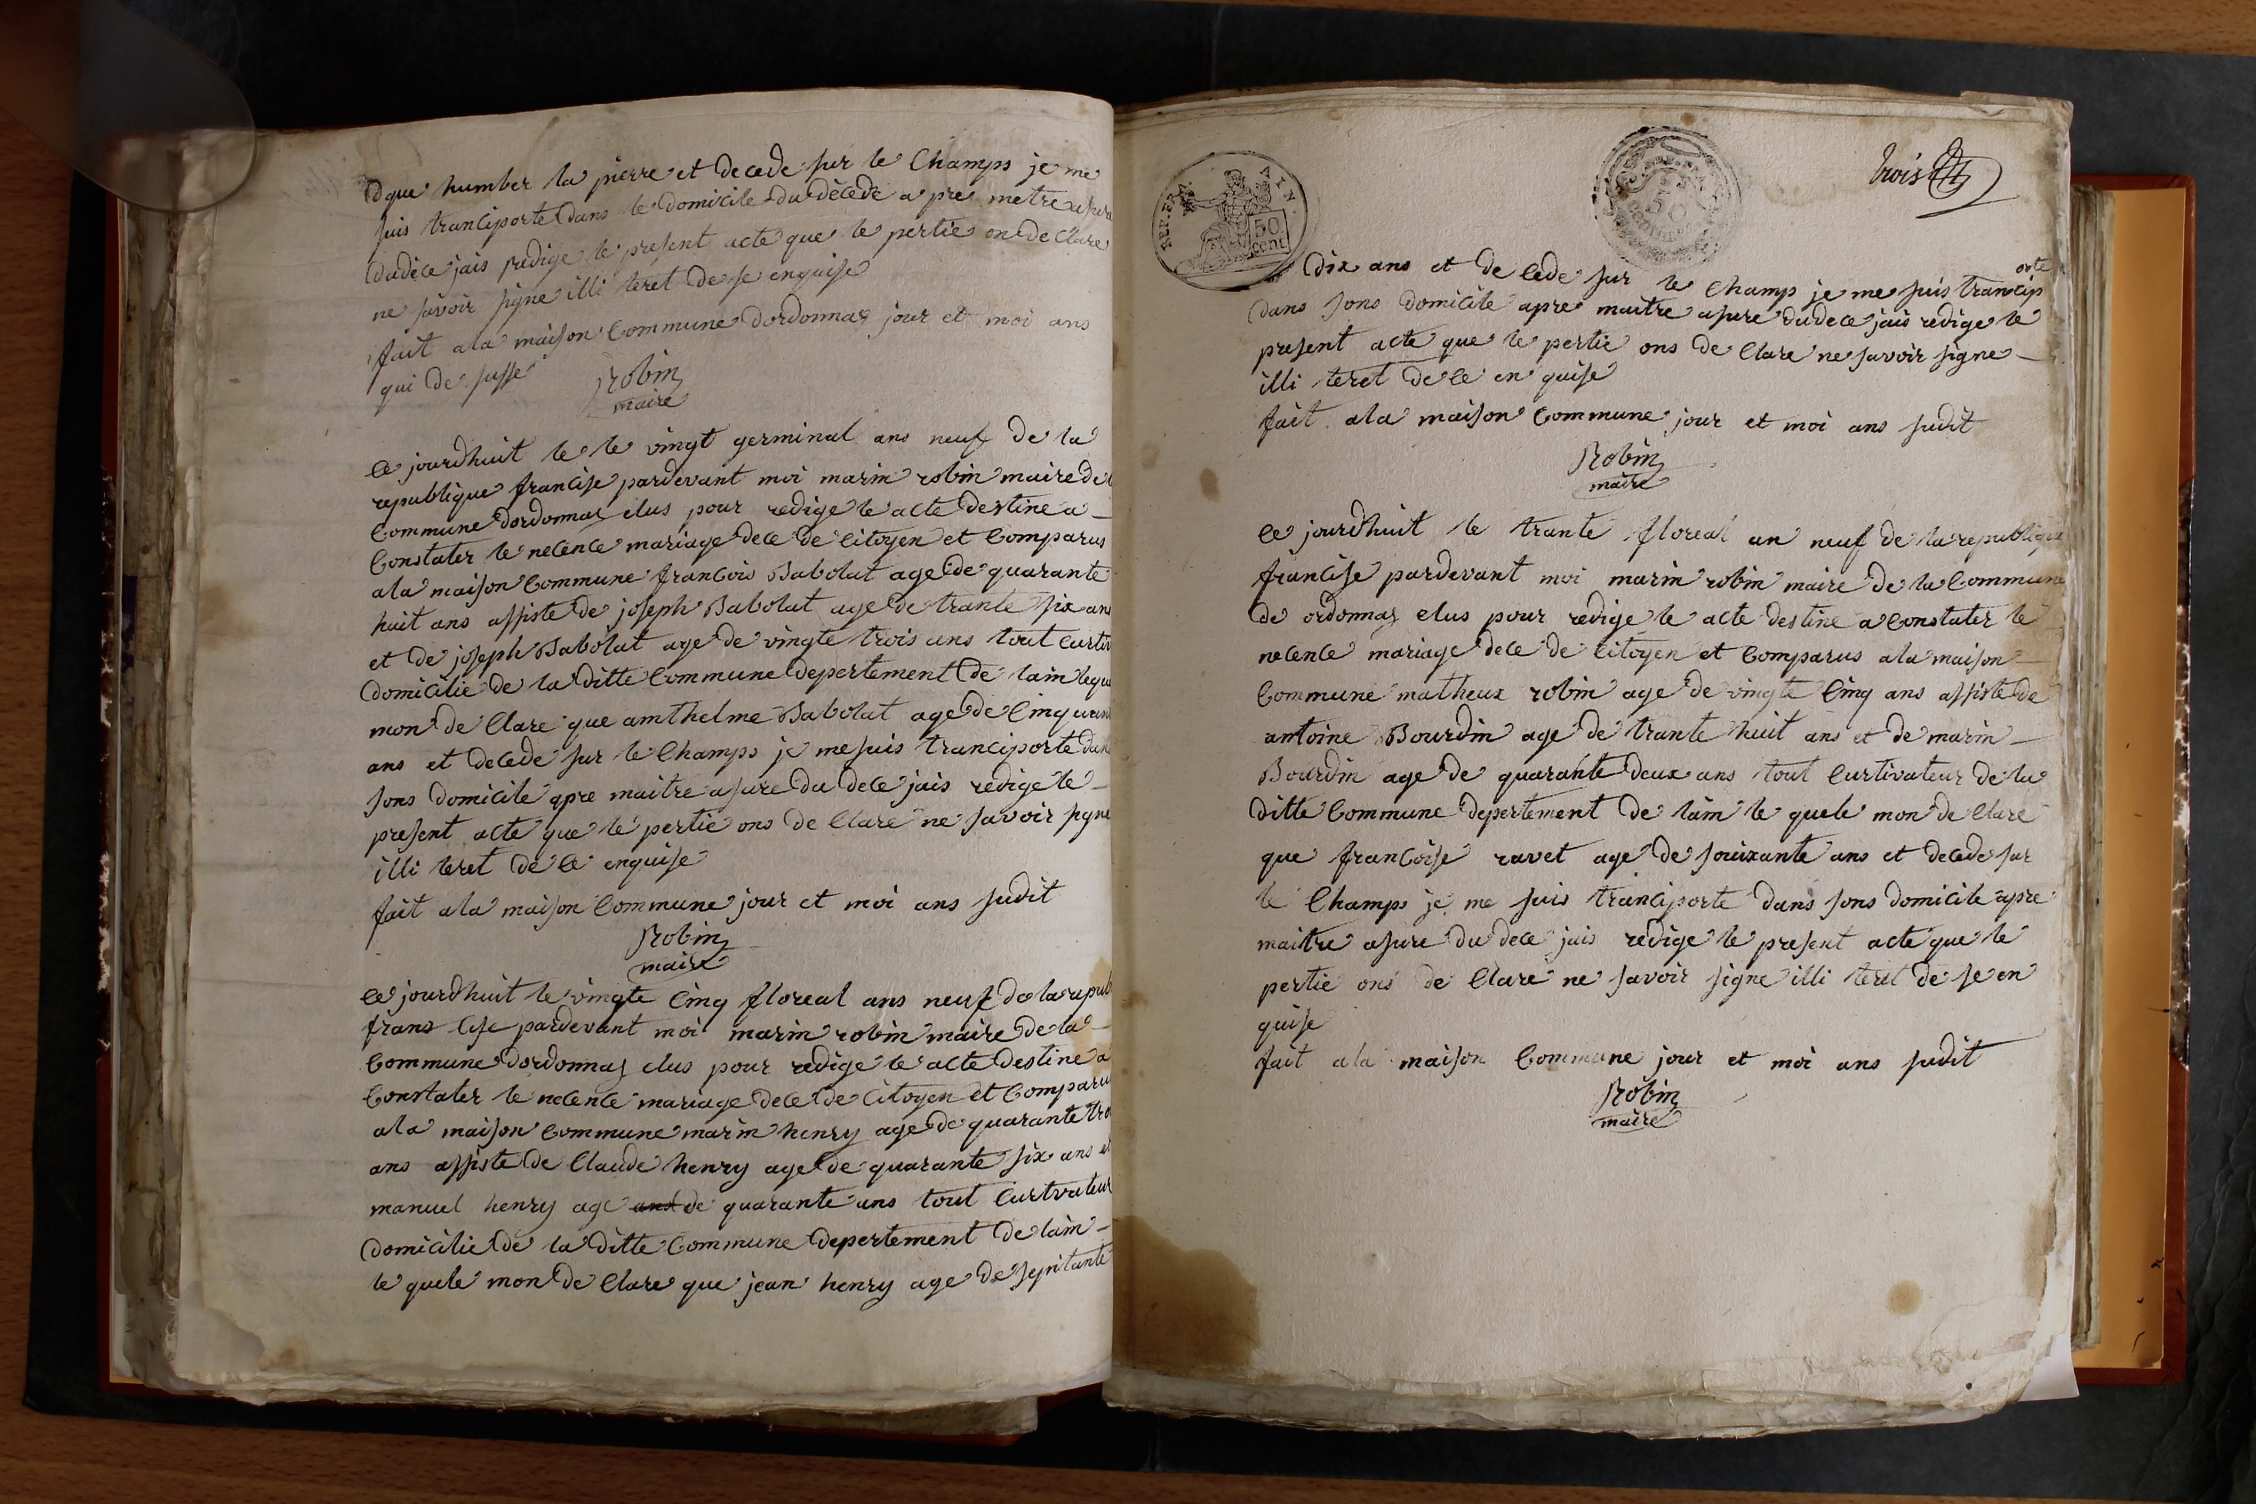 que humber la pierre et decede sur le Champs je me
suis tranciporte dans le domicile du décede a pre metre asure
dudece jais redige le present acte que le pertie on de Clare
ne savoir signe illi teret de se enquise
fait a la maison Commune dordonnaz jour et moi ans
qui de susse
Robin
maire
Ce jourdhuit le le vingt germinal ans neuf de la
republique francise pardevant moi marin robin maire de
Commune dordonnaz elus pour redige le acte destine a
Constater le necence mariage dece de citoyen et Comparus
a la maison Commune francois Babolat age de quarante
huit ans assiste de joseph Babolat age de trante six ans
et de joseph Babolat age de vingte trois ans tout Curtiv
domicilie de la ditte Commune depertement de lain lequ
mon de Clare que amthelme Babolat age de Cinquant
ans et decede sur le Champs je me suis tranciporte dan
sons domicile apre maitre asure du dece jais redige le
present acte que le pertie ons de Clare ne savoir signe
illi teret de ce enquise
fait a la maison Commune jour et moi ans sudit
Robin
maire
Ce jourdhuit le vingte Cinq floreal ans neuf de la republ
frans cise pardevant moi marin robin maire de la
Commune dordonnaz elus pour redige le acte destine a
Constater le necence mariage dece de Citoyen et Comparu
a la maison Commune marin henry age de quarante tro
ans assiste de Claude henry age de quarante six ans et
manuel henry age ans de quarante ans tout Curtvateur
domicilie de la ditte Commune depertement de lain
le quele mon de Clare que jean henry age de septante
REP. FRA. AIN.
50 cent
50
trois
dix ans et de cede sur le champ je me suis tranciporte
dans sons domicile apre maitre asure dudece jais redige le
present acte que le pertie ons de Clare ne savoir signe
illi teret de ce en quise
fait a la maison Commune jour et moi ans sudit
Robin
maire
Ce jourdhuit le trante floreal an neuf de la republique
francise pardevant moi marin robin maire de la Commune
de ordonnaz elus pour redige le acte destine a Constater le
necence mariage dece de Citoyen et Comparus a la maison
Commune matheux robin age de vingte Cinq ans assiste de
antoine Bourdin age de trante huit ans et de marin
Bourdin age de quarante deux ans tout Curtivateur de la
ditte Commune depertement de lain le quele mon de Clare
que francoise ravet age de souixante ans et decede sur
le Champs je me suis tranciporte dans sons domicile apre
maitre asure du dece jais redige le present acte que le
pertie ons de Clare ne savoir signe illi teret de se en
quise
fait a la maison Commune jour et moi ans sudit
Robin
maire